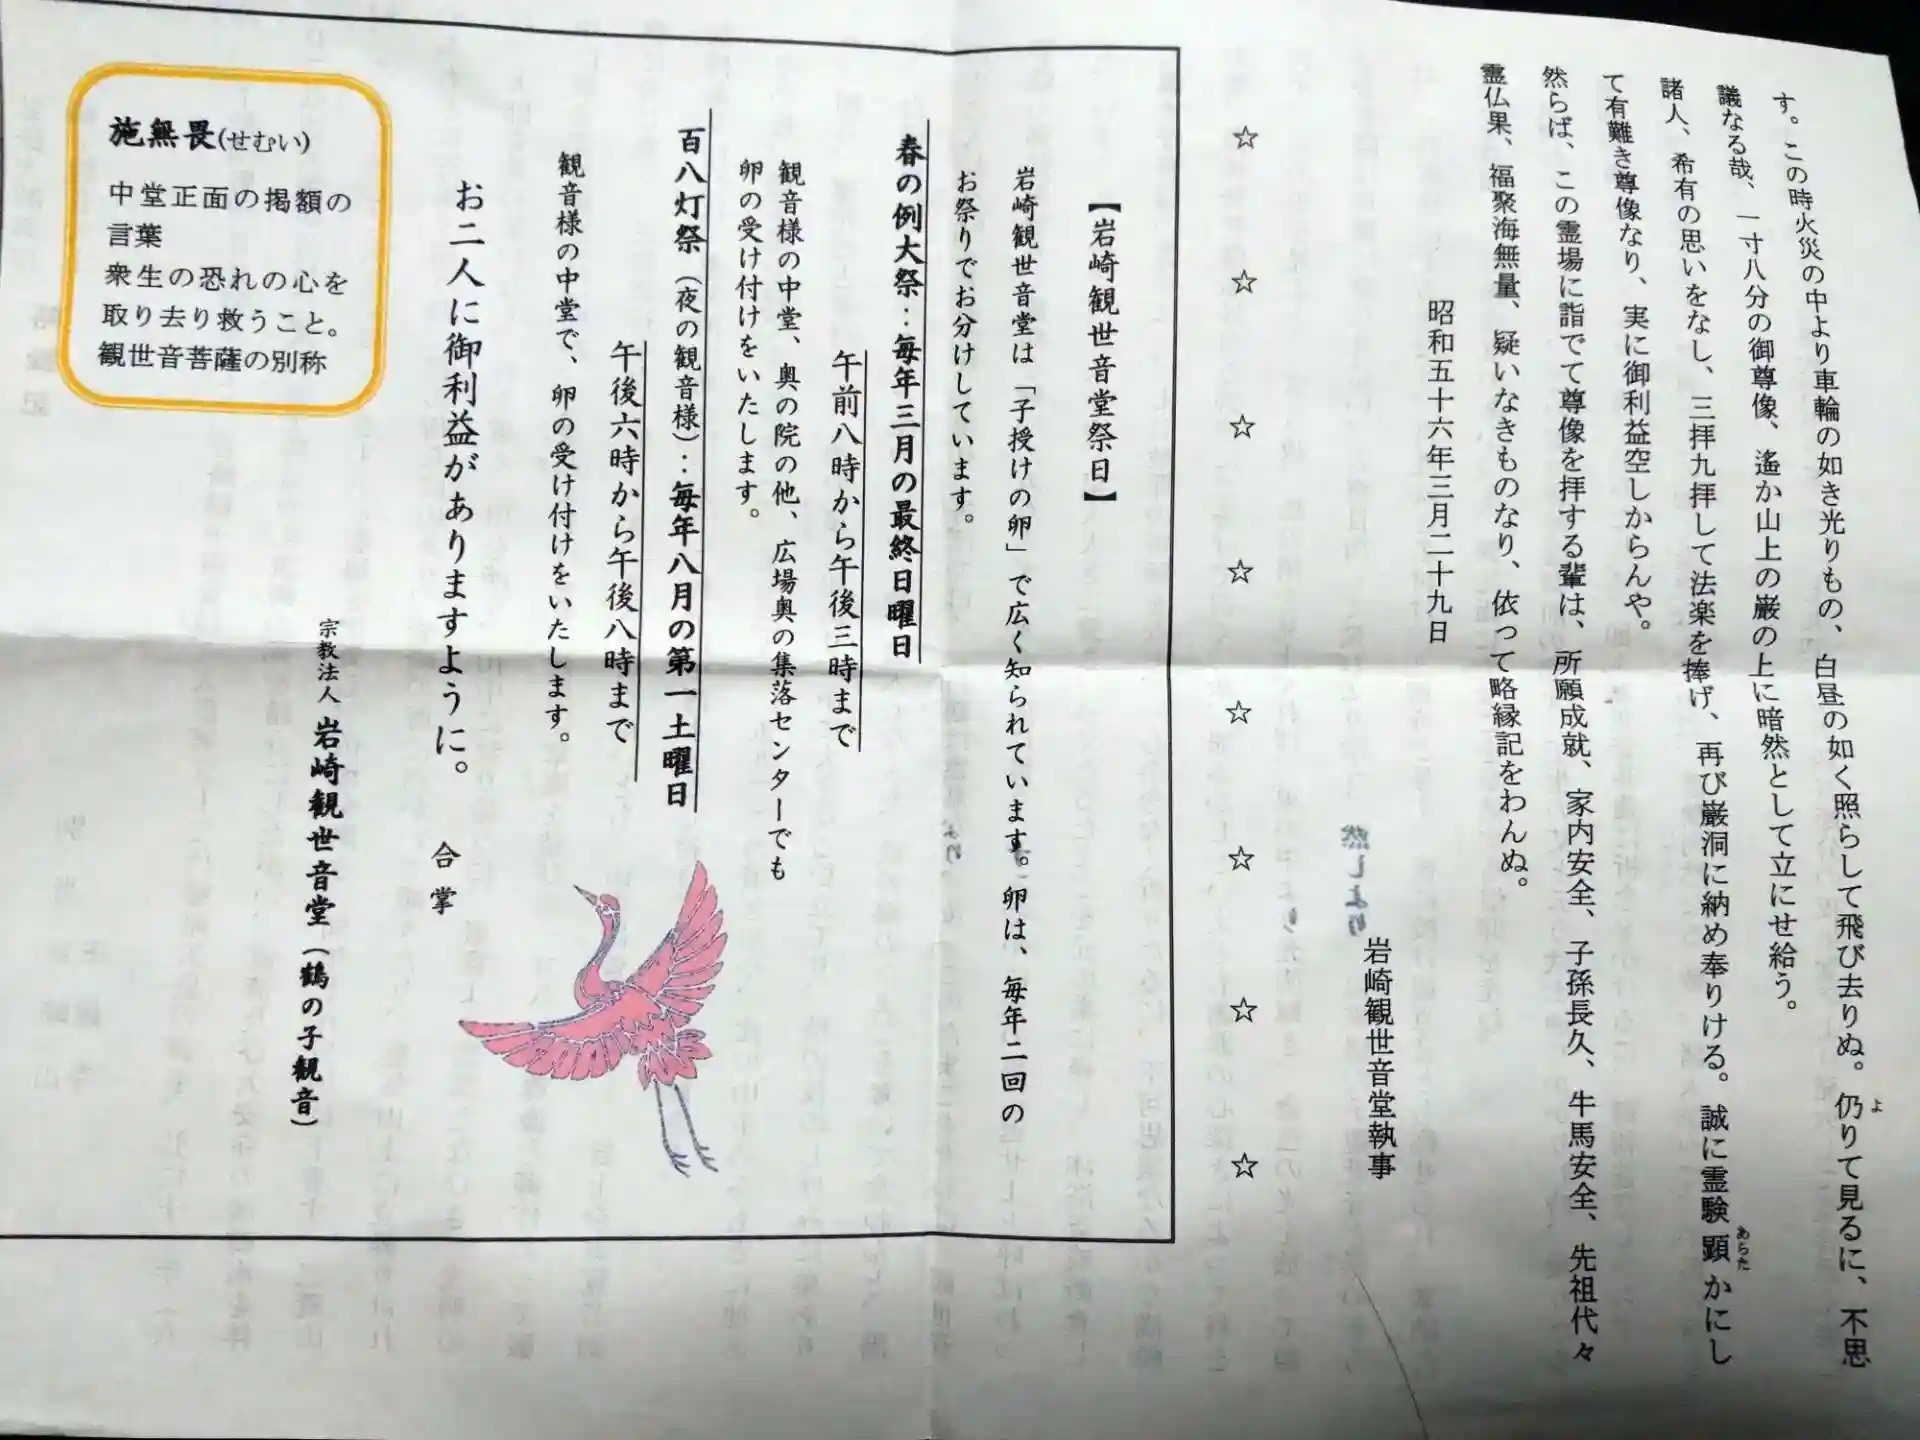 す。この時火災の中より車輪の如き光りもの、白昼の如く照らして飛び去りぬ。仍りて見るに、不思
よ
議なる哉、一寸八分の御尊像、遙か山上の巌の上に暗然として立にせ給う。
諸人、希有の思いをなし、三拝九拝して法楽を捧げ、再び巌洞に納め奉りける。誠に霊験顕かにし
あらた
て有難き尊像なり、実に御利益空しからんや。
然らば、この霊場に詣でて尊像を拝する輩は、所願成就、家内安全、子孫長久、牛馬安全、先祖代々
霊仏果、福聚海無量、疑いなきものなり、依って略縁記をわんぬ。
昭和五十六年三月二十九日
岩崎観世音堂執事
☆ ☆ ☆ ☆ ☆ ☆ ☆ ☆
【岩崎観世音堂祭日】
岩崎観世音堂は「子授けの卵」で広く知られています。卵は、毎年二回の
お祭りでお分けしています。
春の例大祭：毎年三月の最終日曜日
午前八時から午後三時まで
観音様の中堂、奥の院の他、広場奥の集落センターでも
卵の受け付けをいたします。
百八灯祭（夜の観音様）：毎年八月の第一土曜日
午後六時から午後八時まで
観音様の中堂で、卵の受け付けをいたします。
お二人に御利益がありますように。
合掌
宗教法人 岩崎観世音堂（鶴の子観音）
施無畏(せむい)
中堂正面の掲額の
言葉
衆生の恐れの心を
取り去り救うこと。
観世音菩薩の別称